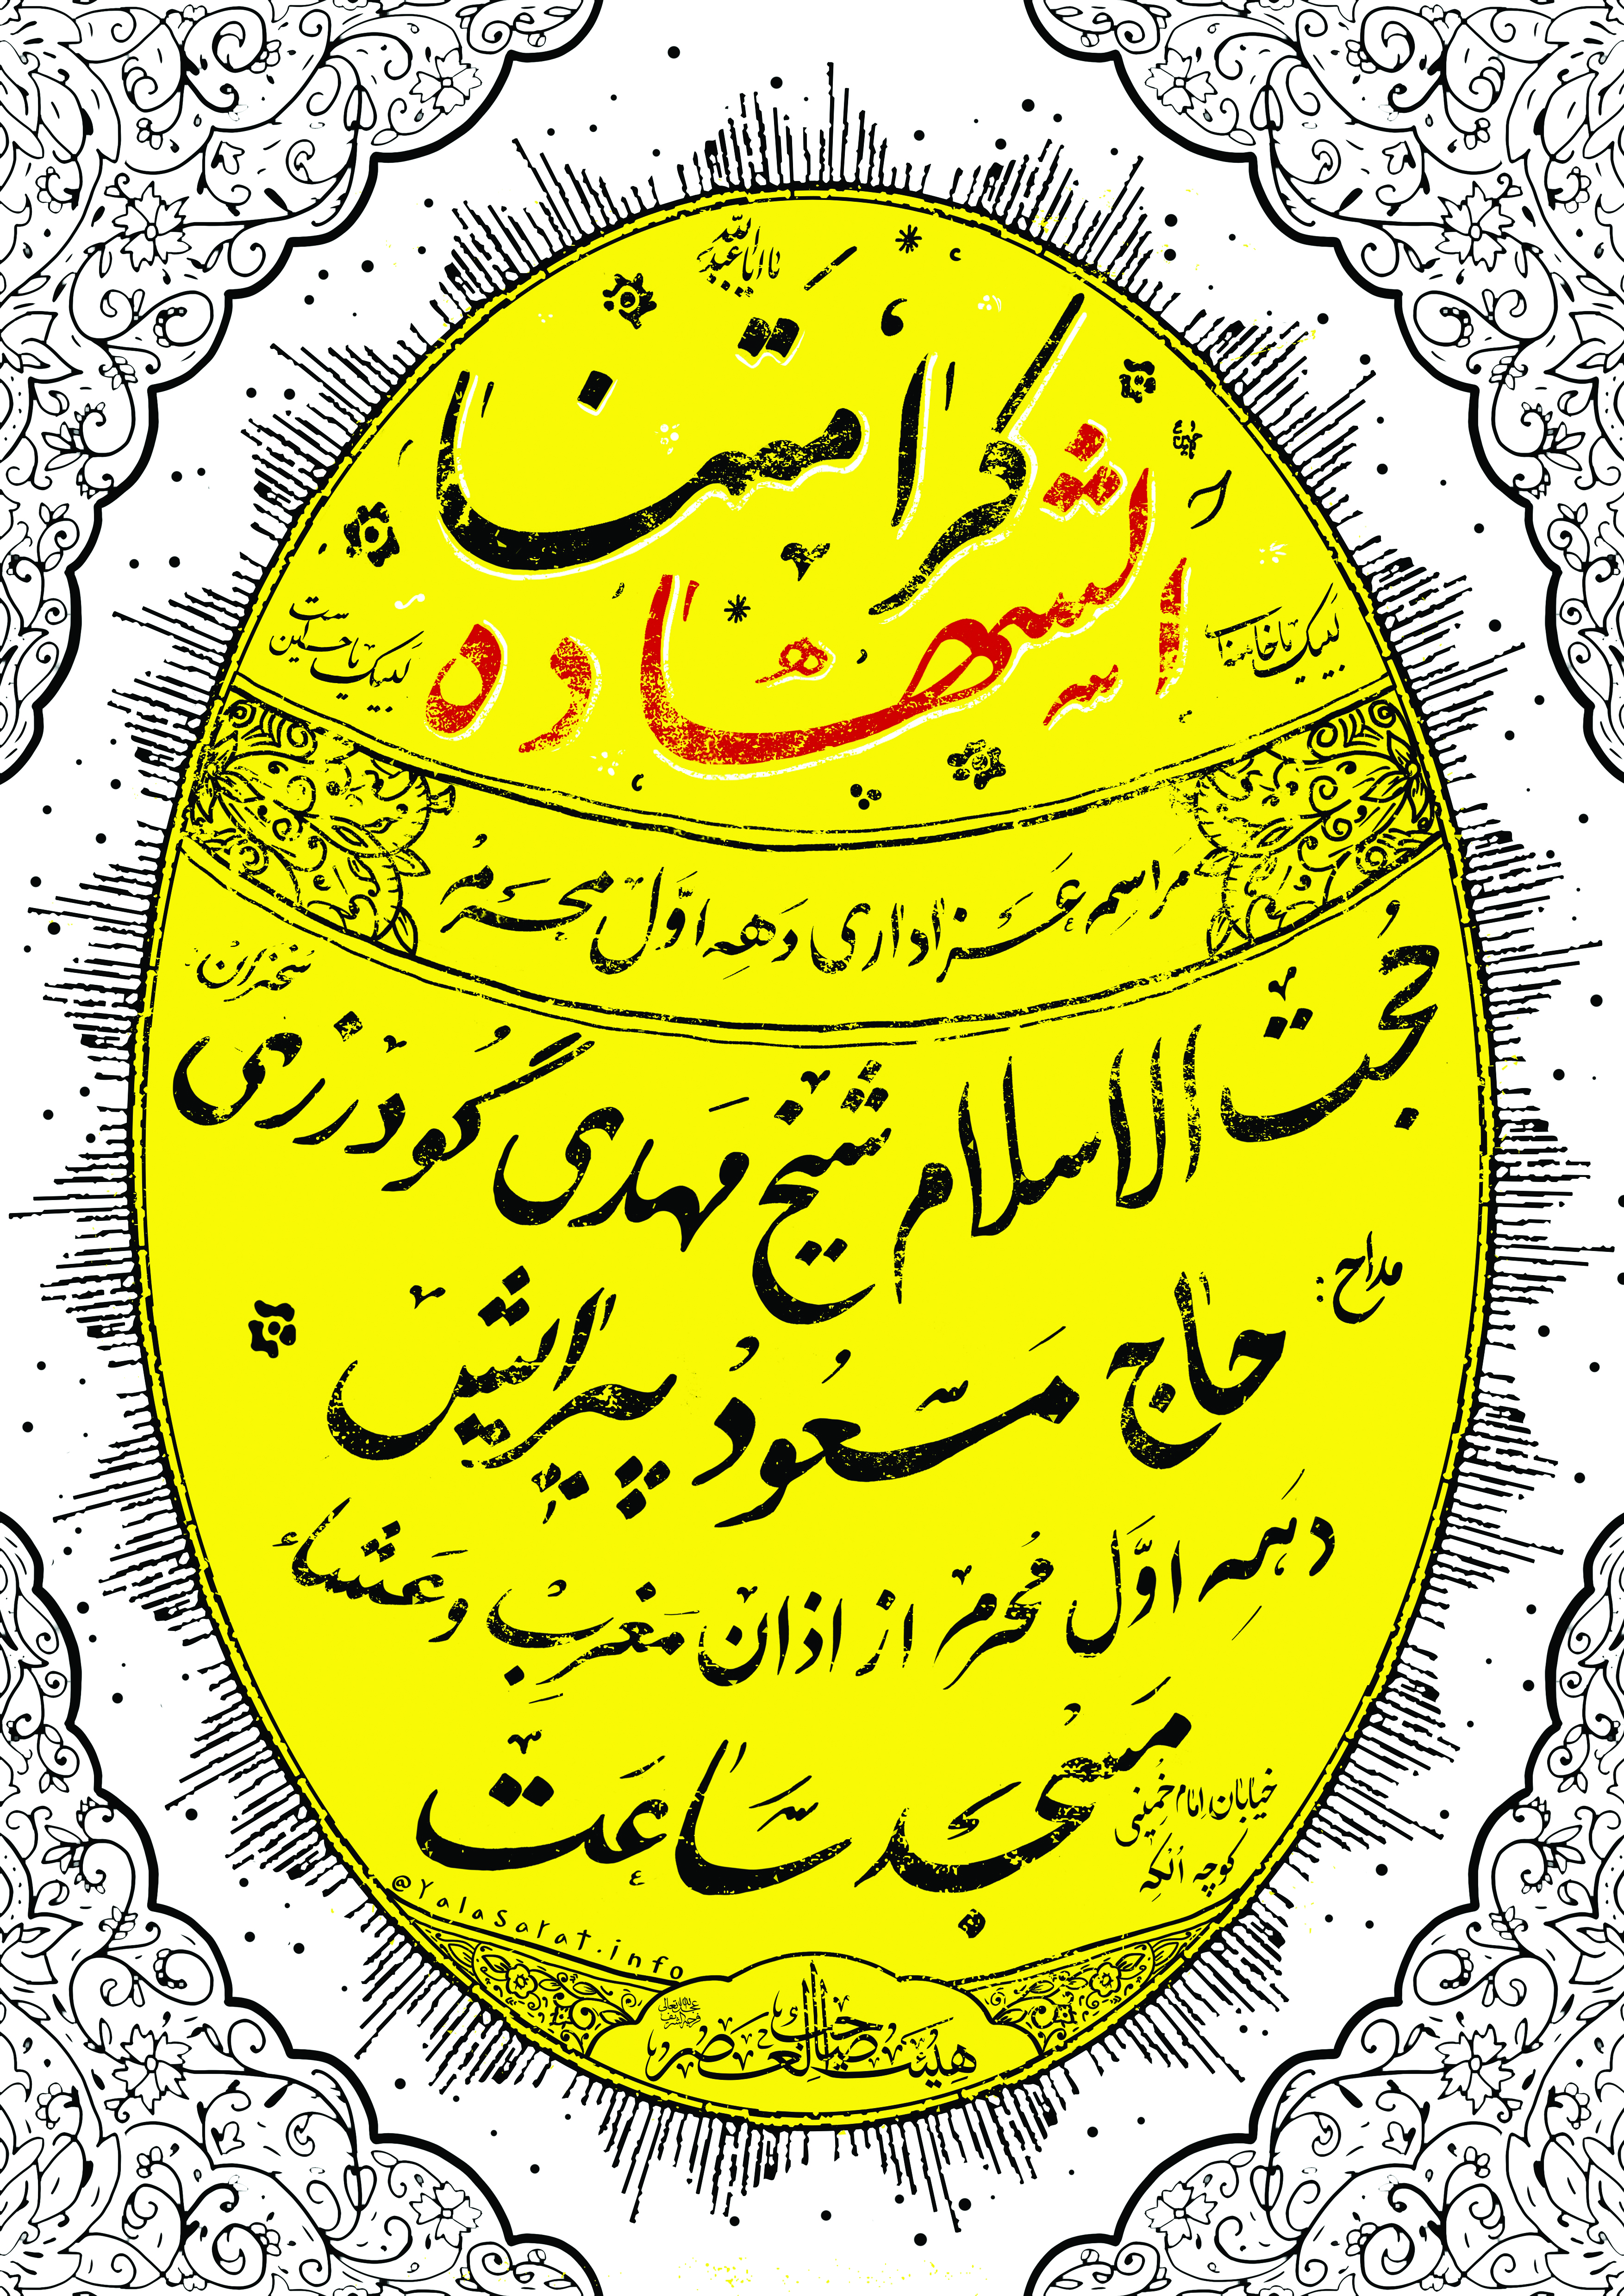 یا اباعبدالله
کرامتنا
الشهاده
لبیک یا خامنه‌ای
لبیک یا حسین است
مراسم عزاداری دهه اول محرم
سخنران:
حجت الاسلام شیخ مهدی گودرزی
مداح:
حاج مسعود پیرایش
دهه اول محرم از اذان مغرب و عشاء
مسجد ساعت
خیابان امام خمینی
کوچه الکه
@Yalasarat.info
هیئت صاحب العصر